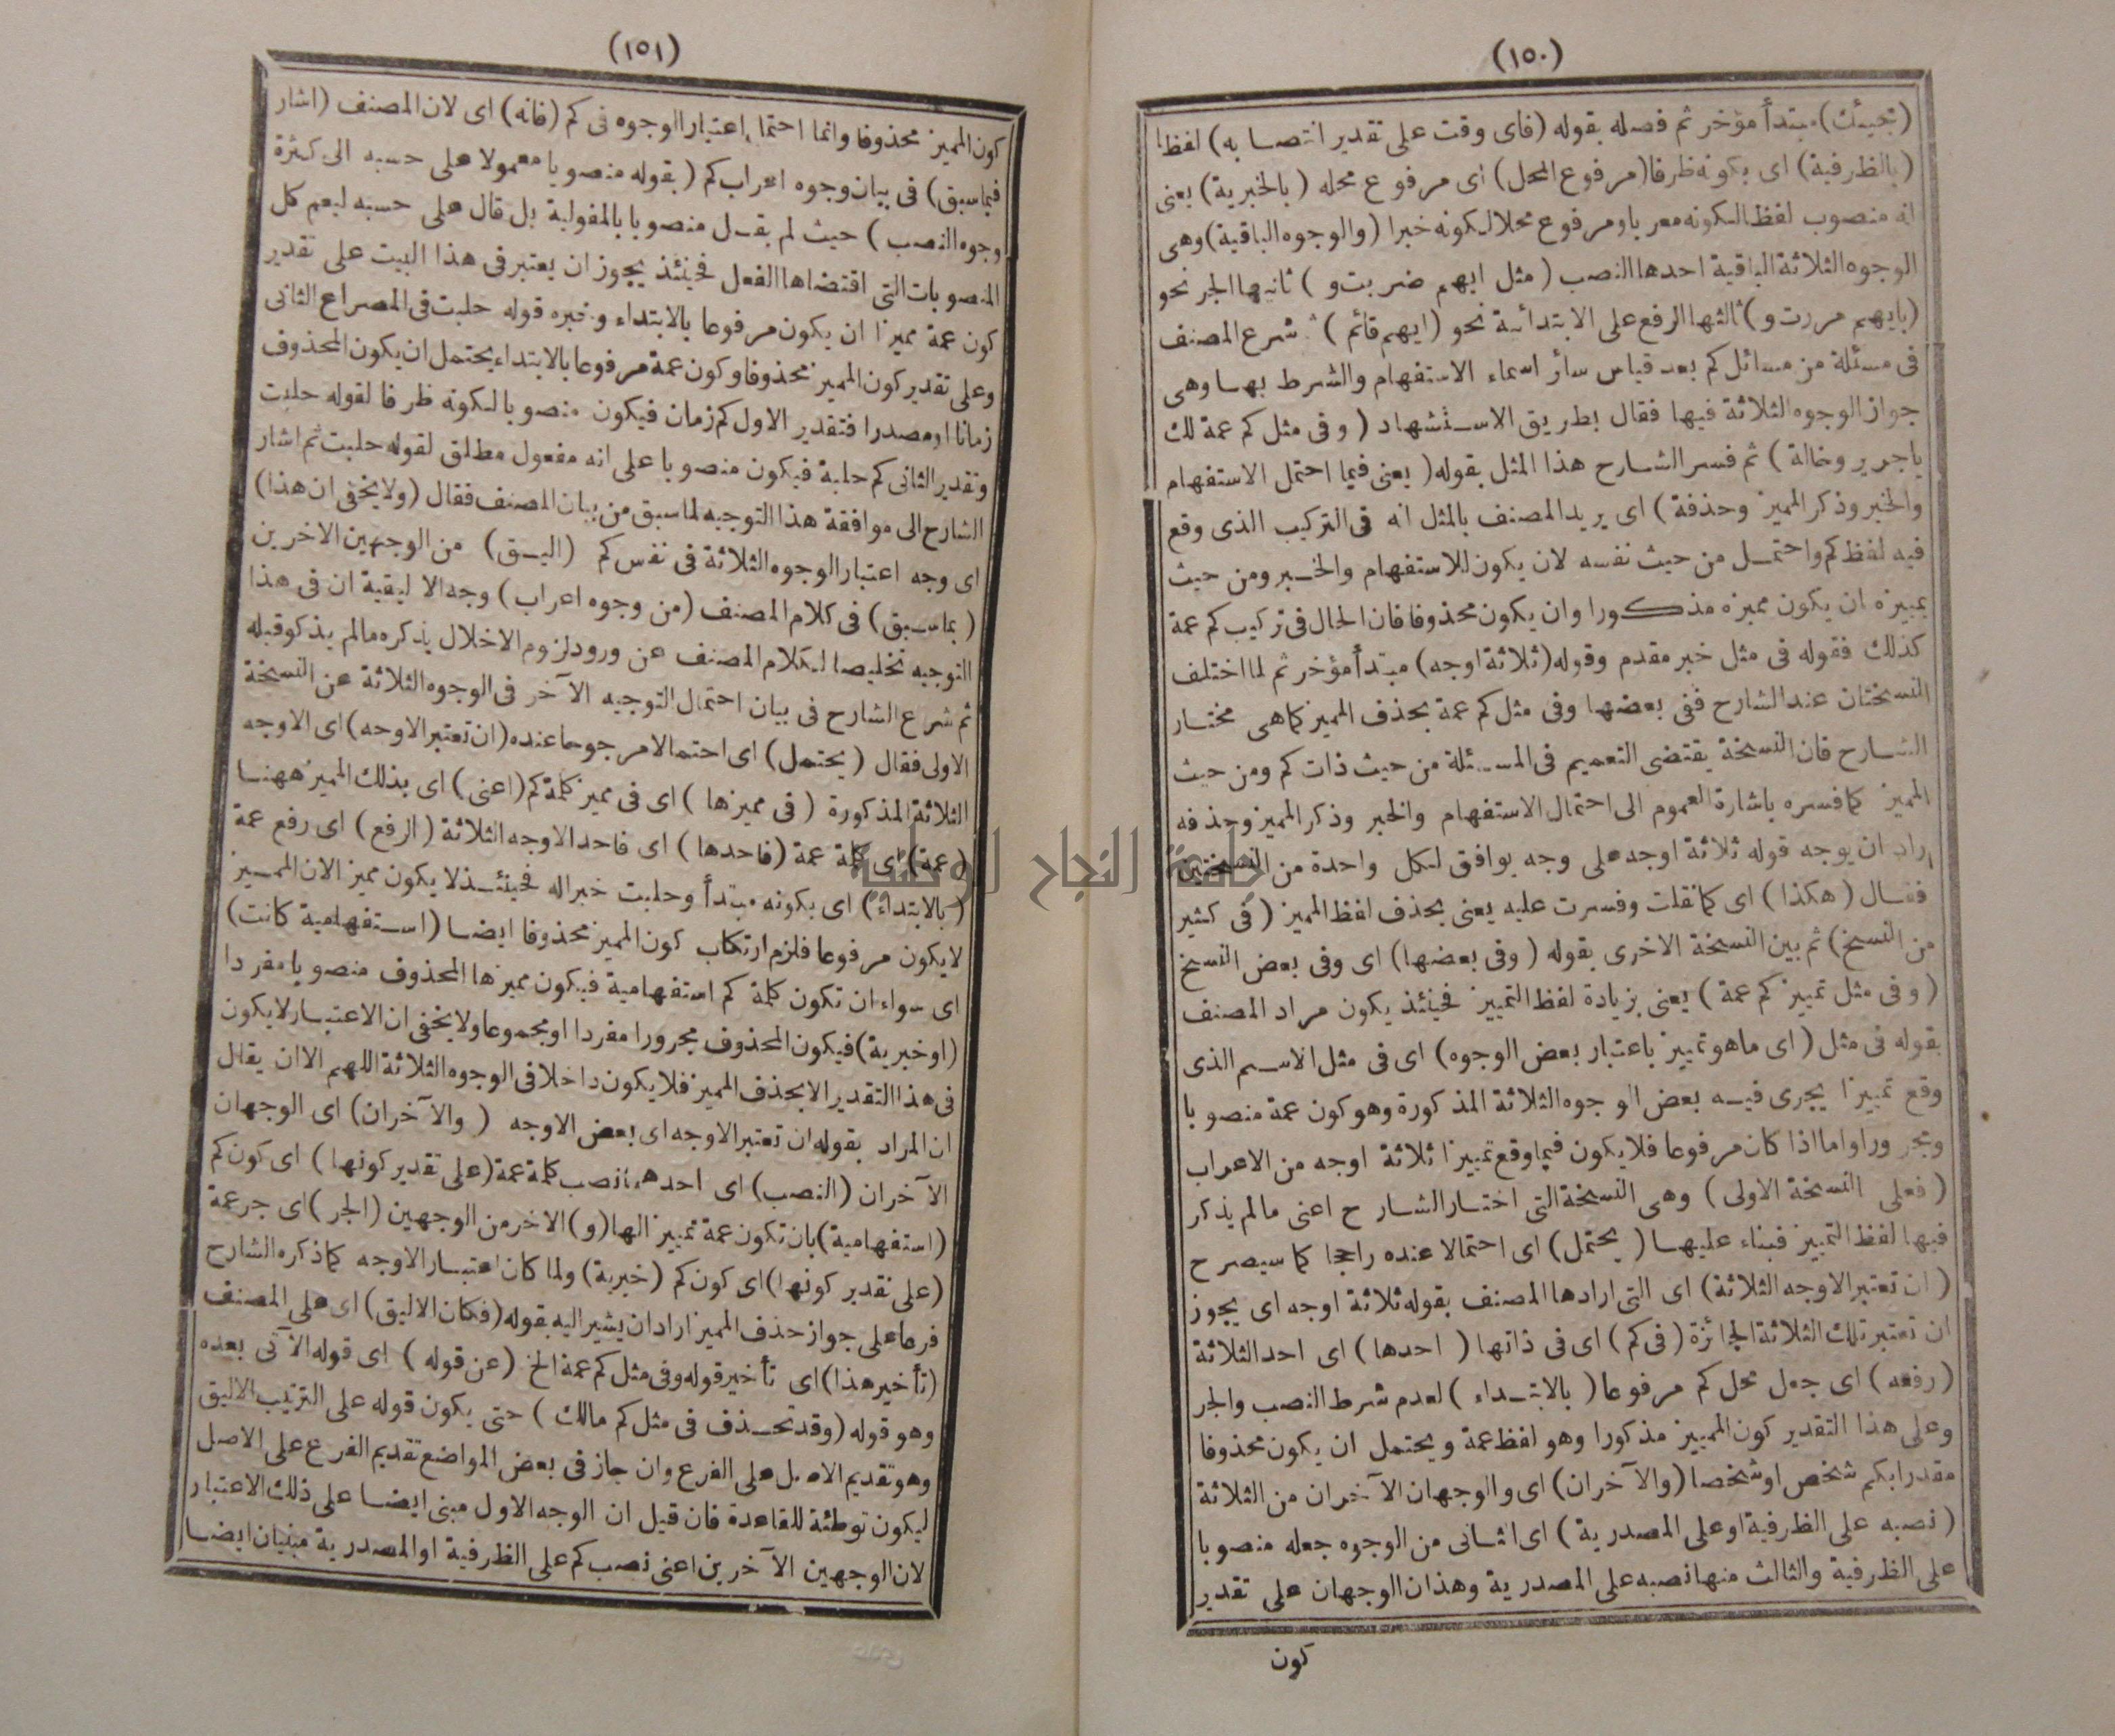 (١٥٠)
(تجيئك) مبتدأ مؤخر ثم فصله بقوله (فاى وقت على تقدير انتصابه) لفظا
(بالظرفية) اى بكونه ظرفا (مرفوع المحل) اى مرفوع محله (بالخبرية) يعنى
انه منصوب لفظا لكونه معربا ومرفوع محلا لكونه خبرا (والوجوه الباقية) وهى
الوجوه الثلاثة الباقية احدها النصب (مثل ايهم ضربت و) ثانيها الجر نحو
(بايهم مررت و) ثالثها الرفع على الابتدائية نحو (ايهم قائم) ثم شرع المصنف
فى مسئلة من مسائل كم بعد قياس سائر اسماء الاستفهام والشرط بها وهى
جواز الوجوه الثلاثة فيها فقال بطريق الاستشهاد (وفى مثل كم عمة لك
ياجرير وخالة) ثم فسر الشارح هذا المثل بقوله (يعنى فيما احتمل الاستفهام
والخبر وذكر المميز وحذفة) اى يريد المصنف بالمثل انه فى التركيب الذى وقع
فيه لفظ كم واحتمل من حيث نفسه لان يكون للاستفهام والخبر ومن حيث
مميزه ان يكون مميزه مذكورا وان يكون محذوفا فان الحال فى تركيب كم عمة
كذلك فقوله فى مثل خبر مقدم وقوله (ثلاثة اوجه) مبتدأ مؤخر ثم لما اختلف
النسختان عند الشارح ففى بعضها وفى مثل كم عمة بحذف المميز كما هى مختار
الشارح فان النسخة يقتضى التعميم فى المسئلة من حيث ذات كم ومن حيث
المميز كما فسره باشارة العموم الى احتمال الاستفهام والخبر وذكر المميز وحذفه
اراد ان يوجه قوله ثلاثة اوجه على وجه يوافق لكل واحدة من النسختين
فقال (هكذا) اى كما نقلت وفسرت عليه يعنى بحذف لفظ المميز (فى كثير
من النسخ) ثم بين النسخة الاخرى بقوله (وفى بعضها) اى وفى بعض النسخ
(وفى مثل تمييز كم عمة) يعنى بزيادة لفظ التمييز فحينئذ يكون مراد المصنف
بقوله فى مثل (اى ما هو تمييز باعتبار بعض الوجوه) اى فى مثل الاسم الذى
وقع تمييزا يجرى فيه بعض الوجوه الثلاثة المذكورة وهو كون عمة منصوبا
ومجرورا واما اذا كان مرفوعا فلا يكون فيما وقع تمييزا ثلاثة اوجه من الاعراب
(فعلى النسخة الاولى) وهى النسخة التى اختار الشارح اعنى مالم يذكر
فيها لفظ التمييز فبناء عليها (يحتمل) اى احتمالا عنده راجحا كما سيصرح
(ان تعتبر الاوجه الثلاثة) اى التى ارادها المصنف بقوله ثلاثة اوجه اى يجوز
ان تعتبر تلك الثلاثة الجائزة (فى كم) اى فى ذاتها (احدها) اى احد الثلاثة
(رفعه) اى جعل محل كم مرفوعا (بالابتداء) لعدم شرط النصب والجر
وعلى هذا التقدير كون المميز مذكورا وهو لفظ عمة ويحتمل ان يكون محذوفا
مقدرا بكم شخص او شخصا (والآخران) اى والوجهان الآخران من الثلاثة
(نصبه على الظرفية او على المصدرية) اى الثانى من الوجوه جعله منصوبا
على الظرفية والثالث منها نصبه على المصدرية وهذان الوجهان على تقدير
كون
(١٥١)
كون المميز محذوفا وانما احتمل اعتبار الوجوه فى كم (فانه) اى لان المصنف (اشار
فيما سبق) فى بيان وجوه اعراب كم (بقوله منصوبا معمولا على حسبه الى كثرة
وجوه النصب) حيث لم يقل منصوبا بالمفعولية بل قال على حسبه ليعم كل
المنصوبات التى اقتضاها الفعل فحينئذ يجوز ان يعتبر فى هذا البيت على تقدير
كون عمة مميزا ان يكون مرفوعا بالابتداء وخبره قوله حلبت فى المصراع الثانى
وعلى تقدير كون المميز محذوفا وكون عمة مرفوعا بالابتداء يحتمل ان يكون المحذوف
زمانا او مصدرا فتقدير الاول كم زمان فيكون منصوبا لكونه ظرفا لقوله حلبت
وتقدير الثانى كم حلبة فيكون منصوبا على انه مفعول مطلق لقوله حلبت ثم اشار
الشارح الى موافقة هذا التوجيه لما سبق من بيان المصنف فقال (ولا يخفى ان هذا)
اى وجه اعتبار الوجوه الثلاثة فى نفس كم (اليق) من الوجهين الاخرين
(بما سبق) فى كلام المصنف (من وجوه اعراب) وجه الاليقية ان فى هذا
التوجيه تخليصا لكلام المصنف عن ورود لزوم الاخلال بذكره مالم يذكر قبله
ثم شرع الشارح فى بيان احتمال التوجيه الآخر فى الوجوه الثلاثة عن النسخة
الاولى فقال (يحتمل) اى احتمالا مرجوحا عنده (ان تعتبر الاوجه) اى الاوجه
الثلاثة المذكورة (فى مميزها) اى فى مميز كلمة كم (اعنى) اى بذلك المميز ههنا
(عمة) اى كلمة عمة (فاحدها) اى فاحد الاوجه الثلاثة (الرفع) اى رفع عمة
(بالابتداء) اى بكونه مبتدأ وحلبت خبرا له فحينئذ لا يكون مميزا لان المميز
لا يكون مرفوعا فلزم ارتكاب كون المميز محذوفا ايضا (استفهامية كانت)
اى سواء ان تكون كلمة كم استفهامية فيكون مميزها المحذوف منصوبا مفردا
(او خبرية) فيكون المحذوف مجرورا مفردا او مجموعا ولا يخفى ان الاعتبار لا يكون
فى هذا التقدير الا بحذف المميز فلا يكون داخلا فى الوجوه الثلاثة اللهم الا ان يقال
ان المراد بقوله ان تعتبر الاوجه اى بعض الاوجه (والآخران) اى الوجهان
الآخران (النصب) اى احدهما نصب كلمة عمة (على تقدير كونها) اى كون كم
(استفهامية) بان تكون عمة تمييزا لها (و) الاخر من الوجهين (الجر) اى جر عمة
(على تقدير كونها) اى كون كم (خبرية) ولما كان اعتبار الاوجه كما ذكره الشارح
فرعا على جواز حذف المميز اراد ان يشير اليه بقوله (فكان الاليق) اى على المصنف
(تأخير هذا) اى تأخير قوله وفى مثل كم عمة الخ (عن قوله) اى قوله الآتى بعده
وهو قوله (وقد تحذف فى مثل كم مالك) حتى يكون قوله على الترتيب الاليق
وهو تقديم الاصل على الفرع وان جاز فى بعض المواضع تقديم الفرع على الاصل
ليكون توطئة للقاعدة فان قيل ان الوجه الاول مبنى ايضا على ذلك الاعتبار
لان الوجهين الآخرين اعنى نصب كم على الظرفية او المصدرية مبنيان ايضا
جامعة النجاح الوطنية